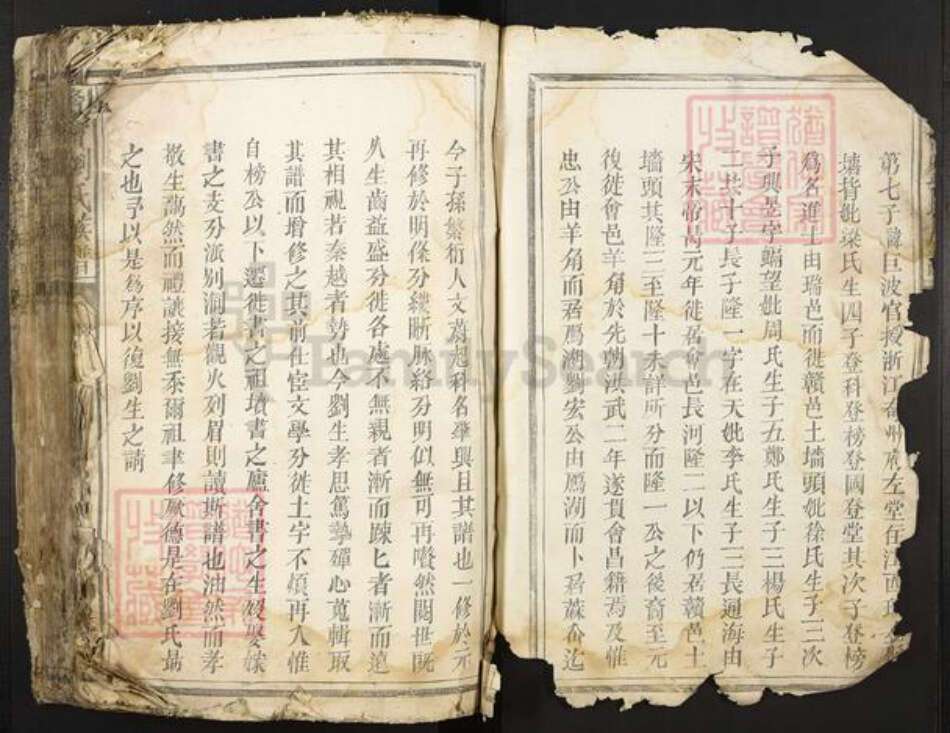 第七子諱巨波官授浙江 左堂任江西
墻皆妣梁氏生四子登科登榜登國登堂其次子登榜
為名進士由瑞邑而徙贛邑土墻頭妣徐氏生子二次
子興 字 望妣周氏生子五鄭氏生子三楊氏生子
二共十子長子隆一字在天妣李氏生子二長通海由
宋末帝昺元年徙居會邑長河隆二以下仍居贛邑土
墻頭其隆二至隆十未詳所分而隆一公之後裔至元
復徙會邑羊角於先朝洪武二年遂貫會昌籍焉及惟
忠公由羊角而居鴈湖 宏公由鴈湖而卜居 迄
今子孫繁衍人文蔚起科名肇興且其譜也一修於元
再修於明條分縷晰脉絡分明似無可再贅然閱世既
久生齒益盛分徙各處不無親者漸而踈匕者漸而遠
其相視若秦越者勢也今劉生孝思篤摯殫心蒐輯取
其譜而增修之其前仕宦文學分徙土字不煩再入惟
自榜公以下遷徙書之祖墳書之廬舍書之生殁娶嫁
書之支分派別洞若觀火列眉則讀斯譜也油然而孝
敬生藹然而禮讓接無忝爾祖聿修厥德是在劉氏勗
之也予以是為序以復劉生之請
劉氏族譜
FamilySearch